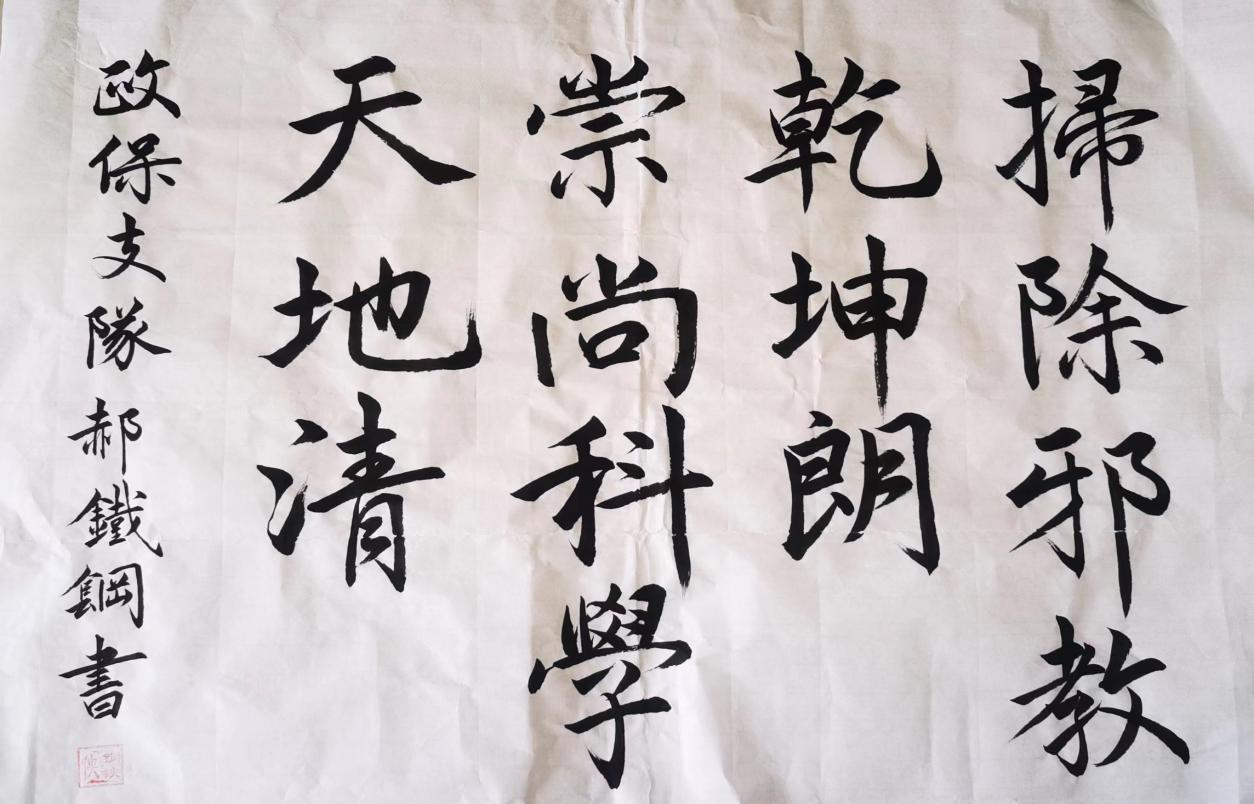 掃除邪教
乾坤朗
崇尚科學
天地清
政保支隊 郝鐵鋼書